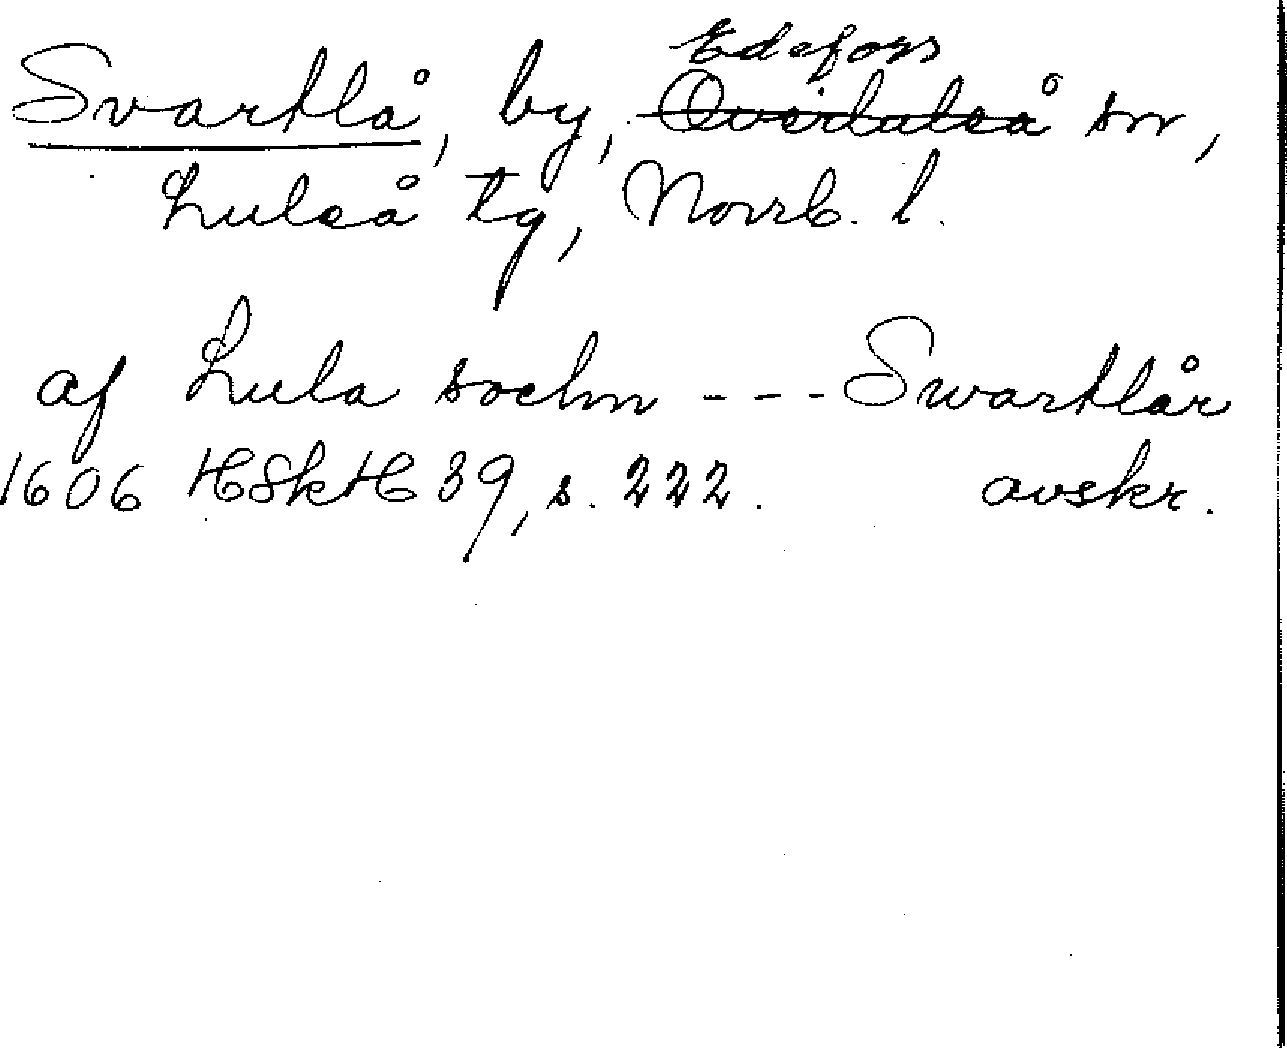 Edefors
Svartlå, by, Överluleå sn,
Luleå tg, Norrb. l.
af Lula sochn --- Swartlår
1606 HSkH 39, s. 222. avskr.